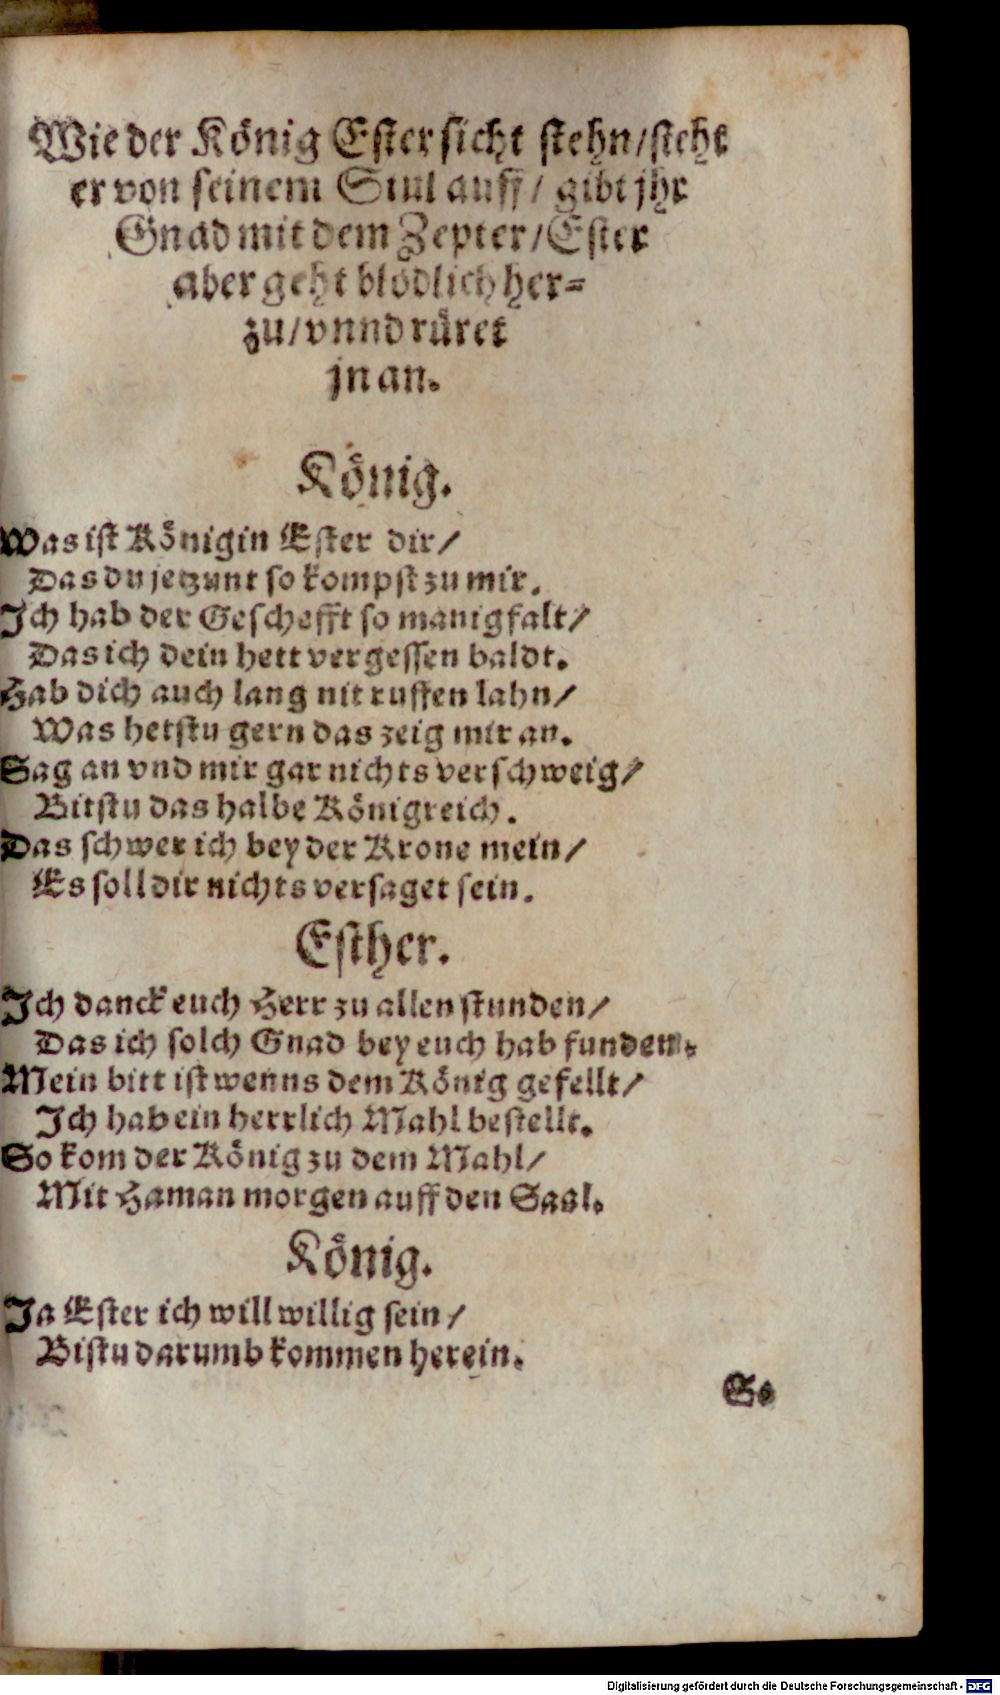 Wie der König Ester sicht stehn/steht
er von seinem Stul auff/ gibt jhr
Gnad mit dem Zepter/Ester
aber geht blödlich her=
zu/vnnd rüret
jn an.
König.
Was ist Königin Ester dir/
Das du jetzunt so kompst zu mir.
Ich hab der Geschefft so manigfalt/
Das ich dein hett vergessen baldt.
Hab dich auch lang nit ruffen lahn/
Was hetstu gern das zeig mir an.
Sag an vnd mir gar nichts verschweig/
Bitstu das halbe Königreich.
Das schwer ich bey der Krone mein/
Es soll dir nichts versaget sein.
Esther.
Ich danck euch Herr zu allen stunden/
Das ich solch Gnad bey euch hab funden.
Mein bitt ist wenns dem König gefellt/
Ich hab ein herrlich Mahl bestellt.
So kom der König zu dem Mahl/
Mit Haman morgen auff den Saal.
König.
Ja Ester ich will willig sein/
Bistu darumb kommen herein.
So
Digitalisierung gefördert durch die Deutsche Forschungsgemeinschaft - DFG